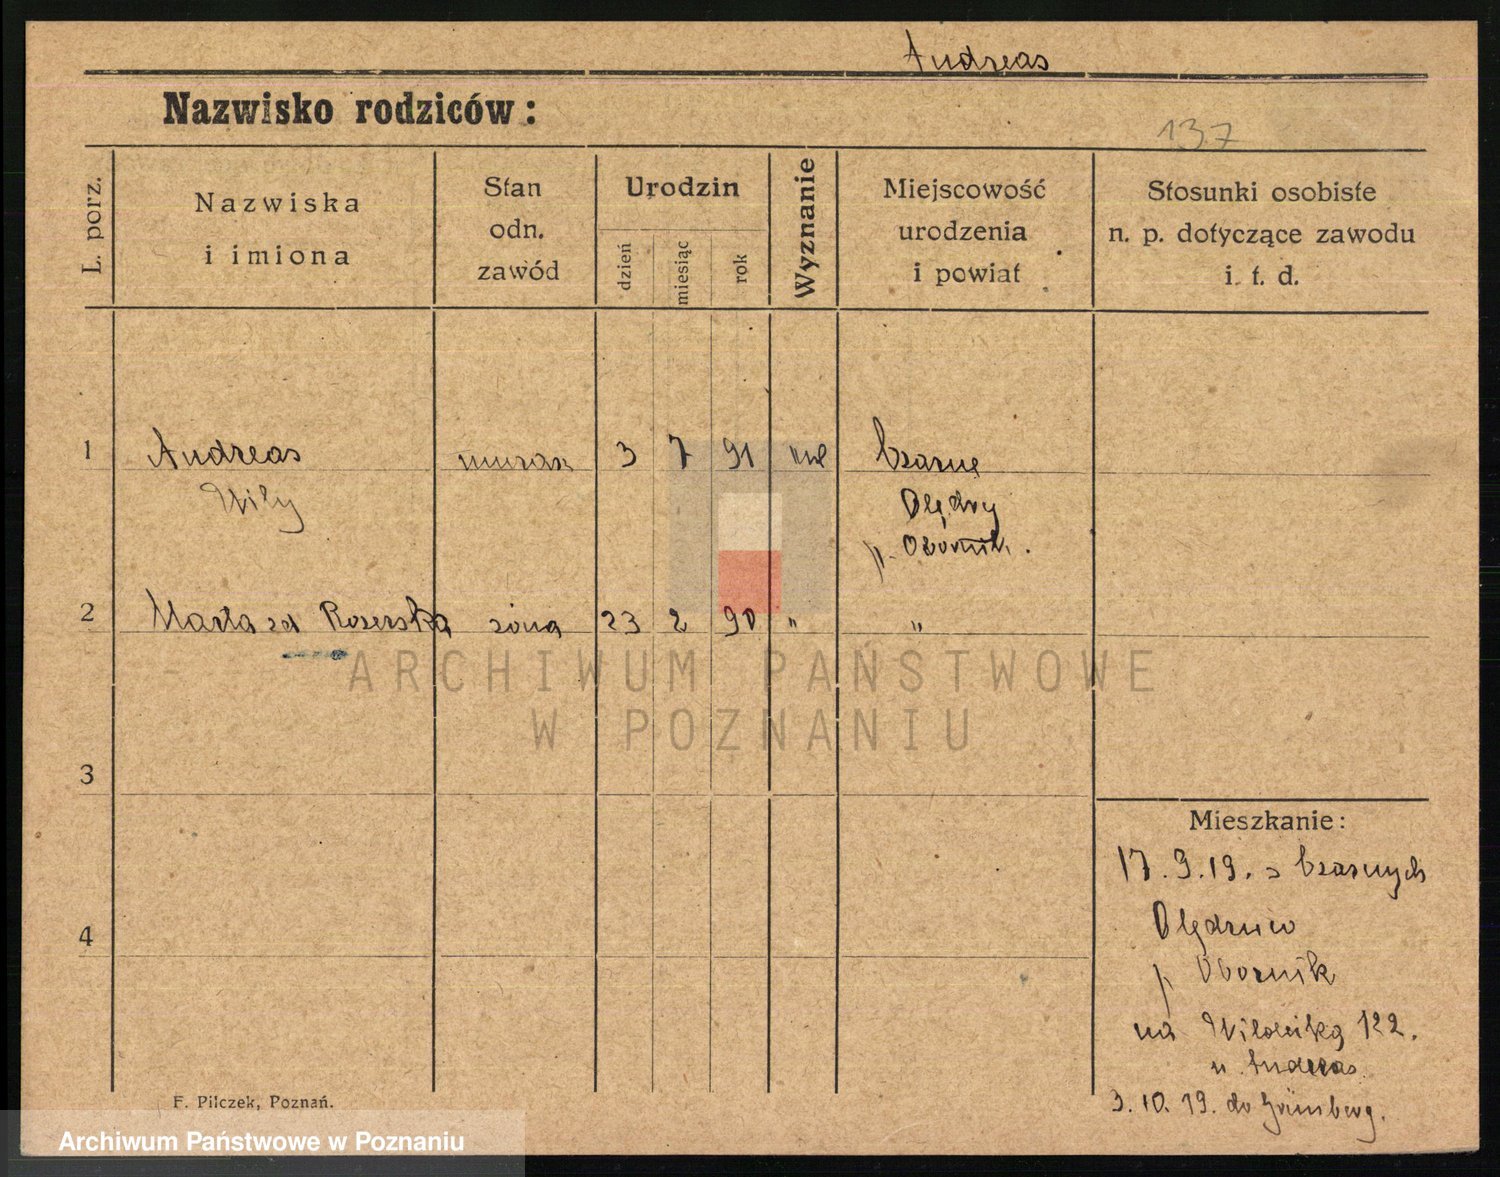 Andreas
Nazwisko rodziców:
137
L. porz.
Nazwiska
i imiona
Stan
odn.
zawód
Urodzin
dzień
miesiąc
rok
Wyznanie
Miejscowość
urodzenia
i powiat
Stosunki osobiste
n. p. dotyczące zawodu
i. t. d.
1 Andreas murarz 3 7 91 Czarne
Wily Olędry
p. Obornik.
2 Marta zd Rozerska żona 23 2 90 " "
ARCHIWUM PAŃSTWOWE
W POZNANIU
3
Mieszkanie:
17.9.19. z Czarnych
4 Olędrów
p Obornik
na 122.
u. Andreas.
3.10.19. do Grünberg.
F. Pilczek, Poznań.
Archiwum Państwowe w Poznaniu